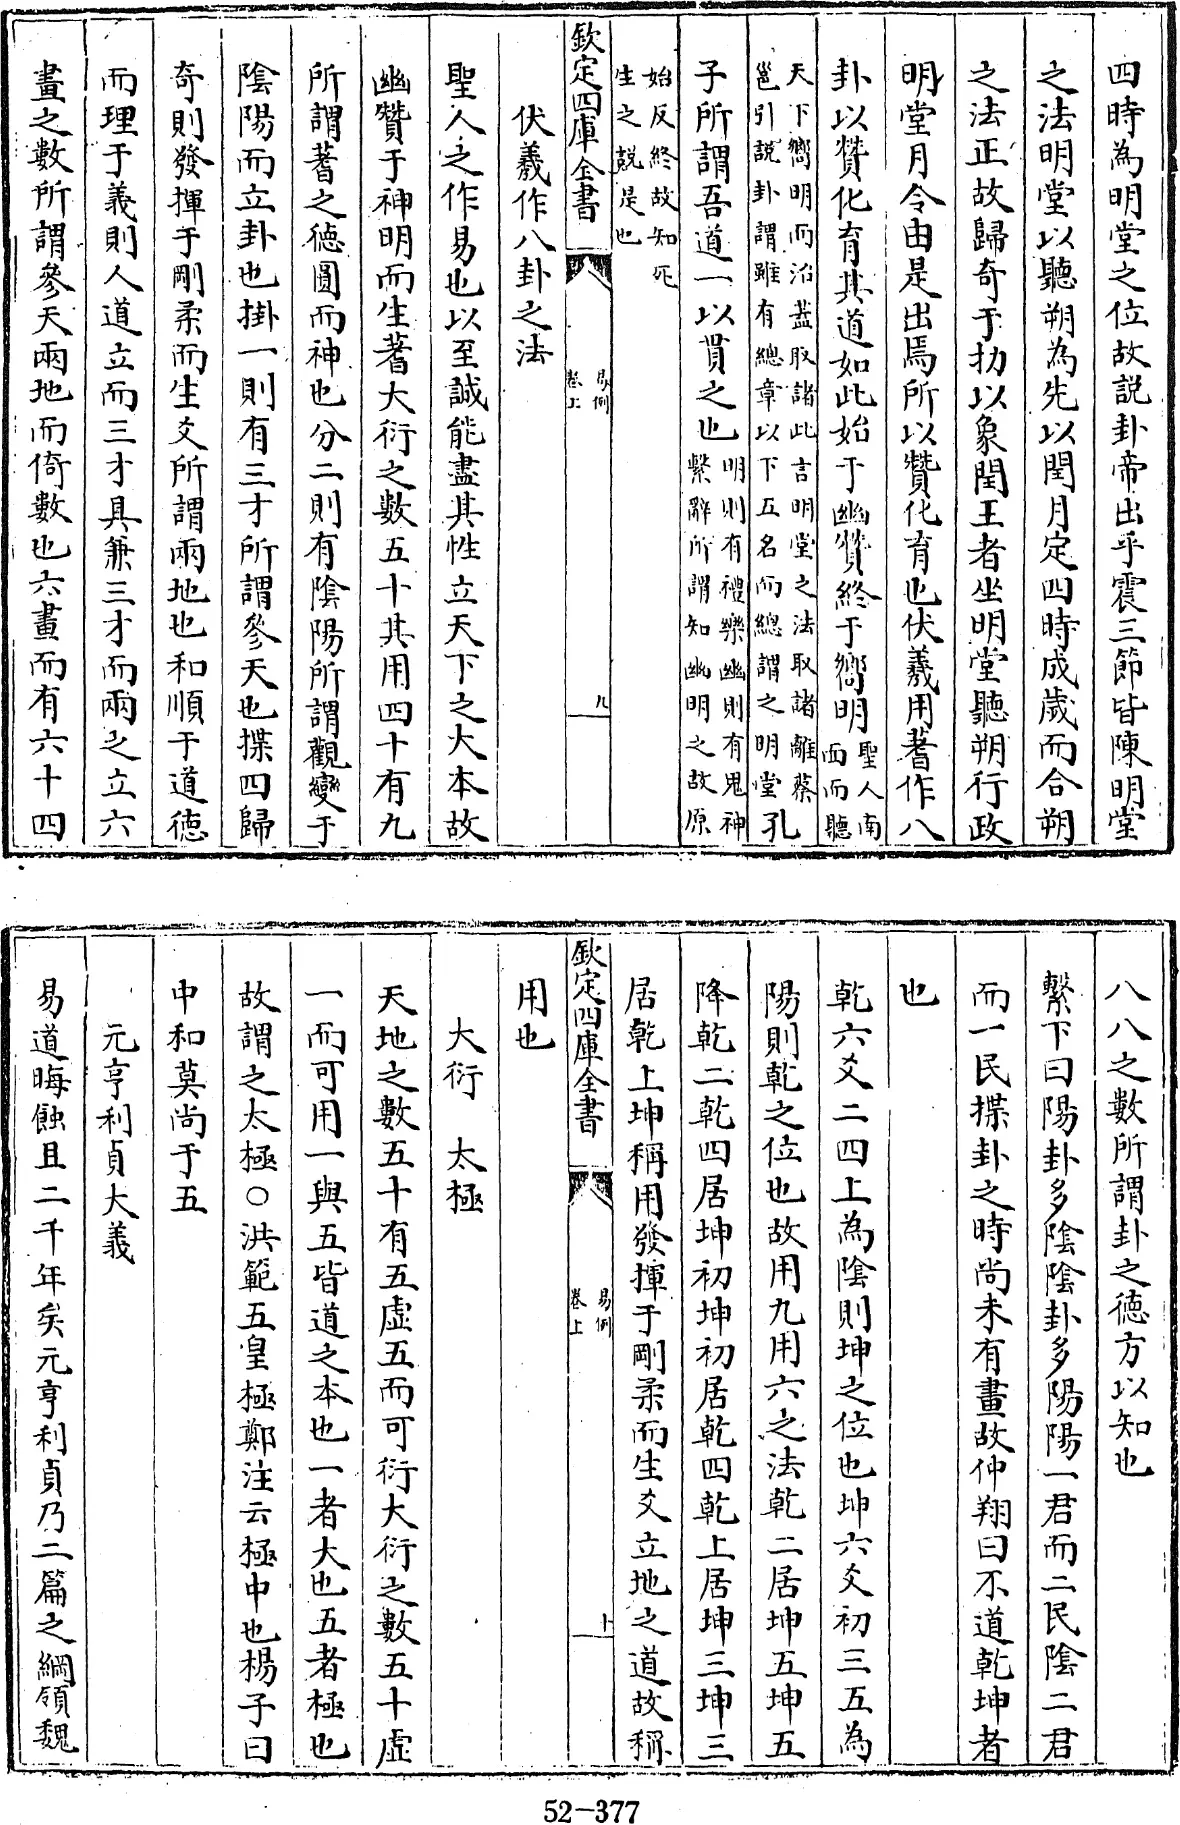 四時為明堂之位故説卦帝出乎震三節皆陳明堂
之法明堂以聽朔為先以閏月定四時成歲而合朔
之法正故歸奇于扐以象閏王者坐明堂聽朔行政
明堂月令由是出焉所以贊化育也伏羲用蓍作八
卦以贊化育其道如此始于幽贊終于嚮明聖人南
面而聽
天下嚮明而治蓋取諸此言明堂之法取諸離蔡
邕引説卦謂雖有總章以下五名而總謂之明堂孔
子所謂吾道一以貫之也明則有禮樂幽則有鬼神
繫辭所謂知幽明之故原
始反終故知死
生之説是也
欽定四庫全書
易例
卷上
九
伏羲作八卦之法
聖人之作易也以至誠能盡其性立天下之大本故
幽贊于神明而生蓍大衍之數五十其用四十有九
所謂蓍之德圓而神也分二則有陰陽所謂觀變于
陰陽而立卦也掛一則有三才所謂參天也揲四歸
奇則發揮于剛柔而生爻所謂兩地也和順于道德
而理于義則人道立而三才具兼三才而兩之立六
畫之數所謂參天兩地而倚數也六畫而有六十四
八八之數所謂卦之德方以知也
繫下曰陽卦多陰陰卦多陽陽一君而二民陰二君
而一民揲卦之時尚未有畫故仲翔曰不道乾坤者
也
乾六爻二四上為陰則坤之位也坤六爻初三五為
陽則乾之位也故用九用六之法乾二居坤五坤五
降乾二乾四居坤初坤初居乾四乾上居坤三坤三
居乾上坤稱用發揮于剛柔而生爻立地之道故稱
欽定四庫全書
易例
卷上
十
用也
大衍　太極
天地之數五十有五虛五而可衍大衍之數五十虛
一而可用一與五皆道之本也一者大也五者極也
故謂之太極○洪範五皇極鄭注云極中也楊子曰
中和莫尚于五
元亨利貞大義
易道晦蝕且二千年矣元亨利貞乃二篇之綱領魏
52-377